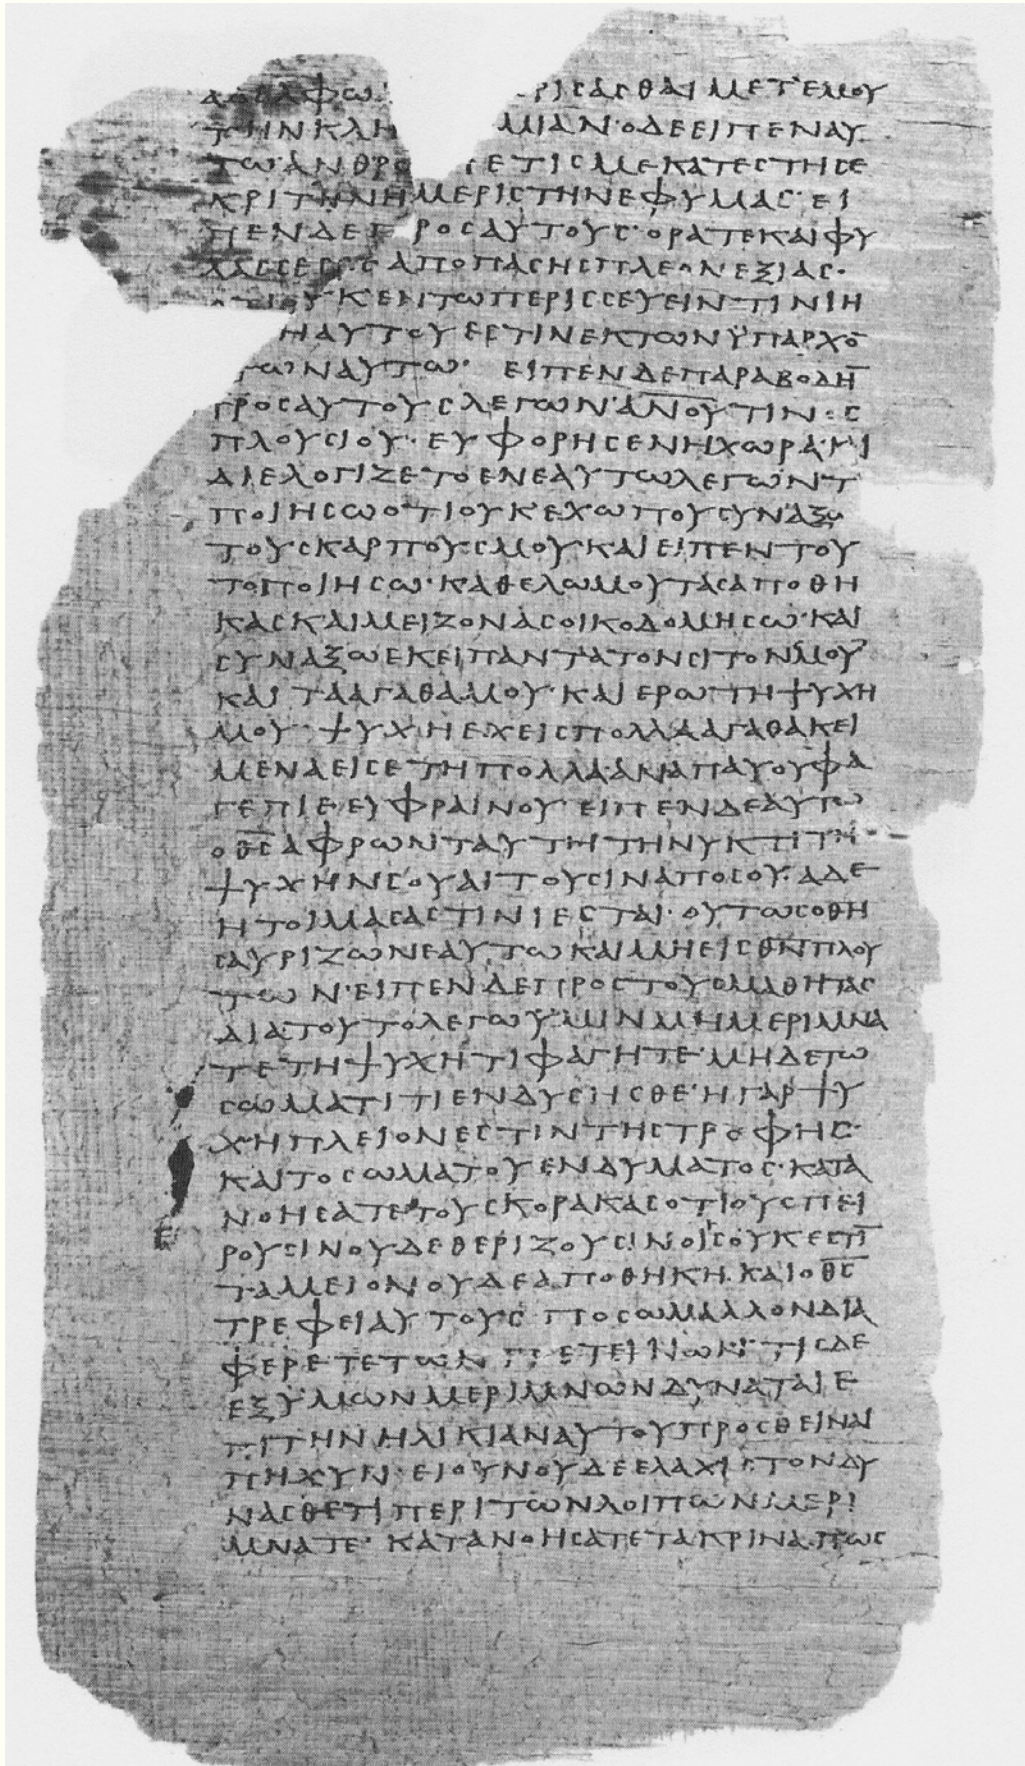 ΑΔΕΛΦΩ ΡΙСΑСΘΑΙ ΜΕΤ ΕΜΟΥ
ΤΗΝ ΚΛΗ ΜΙΑΝ· Ο ΔΕ ΕΙΠΕΝ ΑΥ
ΤΩ ΑΝΘΡΩ Ε ΤΙС ΜΕ ΚΑΤΕСΤΗСΕ
ΚΡΙΤΗΝ Η ΜΕΡΙСΤΗΝ ΕΦ ΥΜΑС· ΕΙ
ΠΕΝ ΔΕ Π ΡΟС ΑΥΤΟΥС· ΟΡΑΤΕ ΚΑΙ ΦΥ
ΛΑССΕС С ΑΠΟ ΠΑСΗС ΠΛΕΟΝΕΞΙΑС·
ΟΤΙ ΟΥΚ ΕΝ ΤΩ ΠΕΡΙССΕΥΕΙΝ ΤΙΝΙ Η
Η ΑΥΤΟΥ ΕСΤΙΝ ΕΚ ΤΩΝ ΫΠΑΡΧΟ̅
ΤΩΝ ΑΥΤΩ· ΕΙΠΕΝ ΔΕ ΠΑΡΑΒΟΛΗ̅
ΠΡΟС ΑΥΤΟΥС ΛΕΓΩΝ· Α̅Ν̅Ο̅Υ̅ ΤΙΝΟС
ΠΛΟΥСΙΟΥ· ΕΥΦΟΡΗСΕΝ Η ΧΩΡΑ· ΚΑΙ
ΔΙΕΛΟΓΙΖΕΤΟ ΕΝ ΕΑΥΤΩ ΛΕΓΩΝ Τ
ΠΟΙΗСΩ ΟΤΙ ΟΥΚ ΕΧΩ ΠΟΥ СΥΝΑΞΩ
ΤΟΥС ΚΑΡΠΟΥС ΜΟΥ· ΚΑΙ ΕΙΠΕΝ ΤΟΥ
ΤΟ ΠΟΙΗСΩ· ΚΑΘΕΛΩ ΜΟΥ ΤΑС ΑΠΟΘΗ
ΚΑС ΚΑΙ ΜΕΙΖΟΝΑС ΟΙΚΟΔΟΜΗСΩ· ΚΑΙ
СΥΝΑΞΩ ΕΚΕΙ ΠΑΝΤΑ ΤΟΝ СΙΤΟΝ ΜΟΥ
ΚΑΙ ΤΑ ΑΓΑΘΑ ΜΟΥ· ΚΑΙ ΕΡΩ ΤΗ ΨΥΧΗ
ΜΟΥ· ΨΥΧΗ ΕΧΕΙС ΠΟΛΛΑ ΑΓΑΘΑ ΚΕΙ
ΜΕΝΑ ΕΙС ΕΤΗ ΠΟΛΛΑ· ΑΝΑΠΑΥΟΥ ΦΑ
ΓΕ ΠΙΕ· ΕΥΦΡΑΙΝΟΥ· ΕΙΠΕΝ ΔΕ ΑΥΤΩ
Ο Θ̅С̅ ΑΦΡΩΝ ΤΑΥΤΗ ΤΗ ΝΥΚΤΙ ΤΗ
ΨΥΧΗΝ СΟΥ ΑΙΤΟΥСΙΝ ΑΠΟ СΟΥ· Α ΔΕ
ΗΤΟΙΜΑСΑС ΤΙΝΙ ΕСΤΑΙ· ΟΥΤΩС Ο ΘΗ
СΑΥΡΙΖΩΝ ΕΑΥΤΩ ΚΑΙ ΜΗ ΕΙС Θ̅Ν̅ ΠΛΟΥ
ΤΩΝ· ΕΙΠΕΝ ΔΕ ΠΡΟС ΤΟΥС ΜΑΘΗΤΑС
ΔΙΑ ΤΟΥΤΟ ΛΕΓΩ ΫΜΙΝ ΜΗ ΜΕΡΙΜΝΑ
ΤΕ ΤΗ ΨΥΧΗ ΤΙ ΦΑΓΗΤΕ· ΜΗΔΕ ΤΩ
СΩΜΑΤΙ ΤΙ ΕΝΔΥСΗСΘΕ· Η ΓΑΡ ΨΥ
ΧΗ ΠΛΕΙΟΝ ΕСΤΙΝ ΤΗС ΤΡΟΦΗС·
ΚΑΙ ΤΟ СΩΜΑ ΤΟΥ ΕΝΔΥΜΑΤΟС· ΚΑΤΑ
ΝΟΗСΑΤΕ ΤΟΥС ΚΟΡΑΚΑС ΟΤΙ ΟΥ СΠΕΙ
ΡΟΥСΙΝ ΟΥΔΕ ΘΕΡΙΖΟΥСΙΝ ΟΙС ΟΥΚ ΕСΤΙ̅
ΤΑΜΕΙΟΝ ΟΥΔΕ ΑΠΟΘΗΚΗ· ΚΑΙ Ο Θ̅С̅
ΤΡΕΦΕΙ ΑΥΤΟΥС ΠΟСΩ ΜΑΛΛΟΝ ΔΙΑ
ΦΕΡΕΤΕ ΤΩΝ ΠΕΤΕΙΝΩΝ· ΤΙС ΔΕ
ΕΞ ΫΜΩΝ ΜΕΡΙΜΝΩΝ ΔΥΝΑΤΑΙ Ε
ΠΙ ΤΗΝ ΗΛΙΚΙΑΝ ΑΥΤΟΥ ΠΡΟСΘΕΙΝΑΙ
ΠΗΧΥΝ· ΕΙ ΟΥΝ ΟΥΔΕ ΕΛΑΧΙСΤΟΝ ΔΥ
ΝΑСΘΕ ΤΙ ΠΕΡΙ ΤΩΝ ΛΟΙΠΩΝ ΜΕΡΙ
ΜΝΑΤΕ· ΚΑΤΑΝΟΗСΑΤΕ ΤΑ ΚΡΙΝΑ ΠΩС